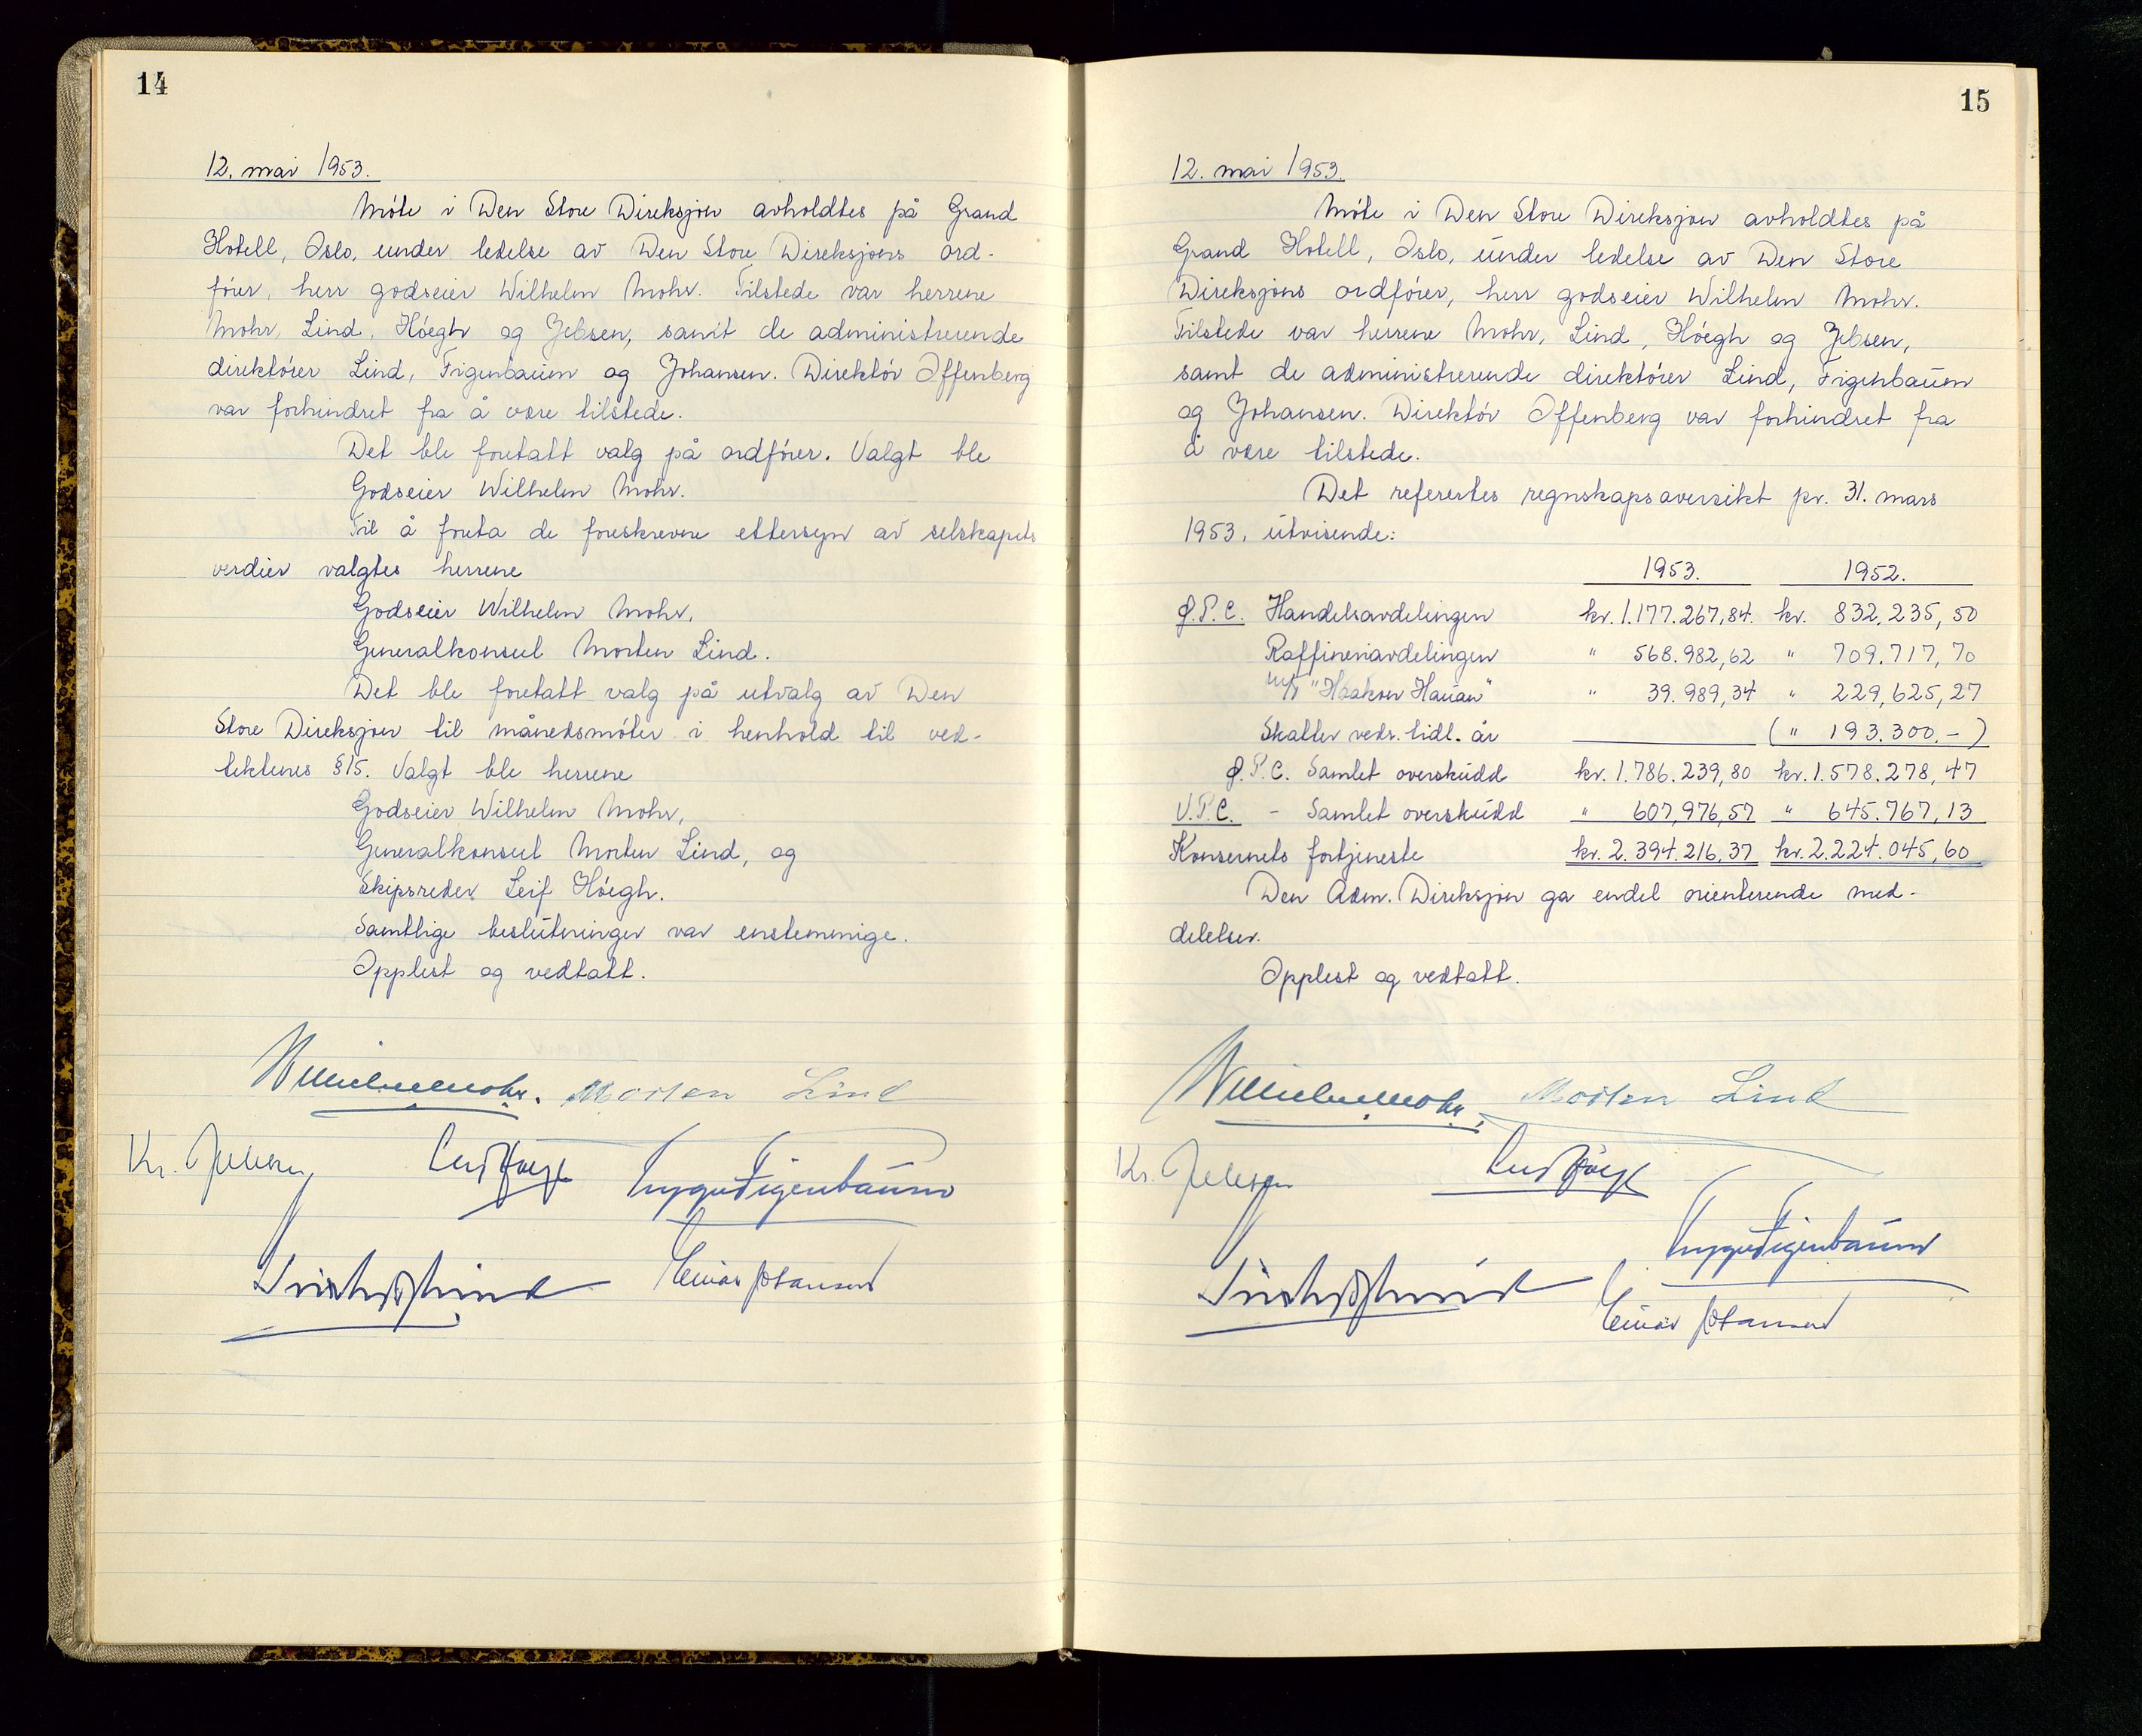 14
12. mai 1953.
Møte i Den Store Direksjon avholdtes på Grand
Hotell, Oslo, under ledelse av Den Store Direksjons ord-
fører, herr godseier Wilhelm Mohr. Tilstede var herrene
Mohr, Lind, Høegh og Jebsen, samt de administrerende
direktører Lind, Figenbaum og Johansen. Direktør Offenberg
var forhindret fra å være tilstede.
Det ble foretatt valg på ordfører. Valgt ble
Godseier Wilhelm Mohr.
Til å foreta de foreskrevne ettersyn av selskapets
verdier valgtes herrene
Godseier Wilhelm Mohr,
Generalkonsul Morten Lind.
Det ble foretatt valg på utvalg av Den
Store Direksjon til månedsmøter i henhold til ved-
tektenes §15. Valgt ble herrene
Godseier Wilhelm Mohr,
Generalkonsul Morten Lind, og
Skipsreder Leif Høegh.
Samtlige beslutninger var enstemmige.
Opplest og vedtatt.
Wilhelm Mohr. Morten Lind
Kr. Jebsen Leif Høegh Trygve Figenbaum
Lind Einar Johansen
15
12. mai 1953.
Møte i Den Store Direksjon avholdtes på
Grand Hotell, Oslo, under ledelse av Den Store
Direksjons ordfører, herr godseier Wilhelm Mohr.
Tilstede var herrene Mohr, Lind, Høegh og Jebsen,
samt de administrerende direktører Lind, Figenbaum
og Johansen. Direktør Offenberg var forhindret fra
å være tilstede.
Det referertes regnskapsoversikt pr. 31. mars
1953, utvisende:
1953. 1952.
Ø.P.C. Handelsavdelingen kr. 1.177.267,84. kr. 832.235,50
Raffineriavdelingen " 568.982,62 " 709.717,70
M/T "Haakon Hauan" " 39.989,34 " 229,625,27
Skatter vedr. tidl. år (" 193.300.-)
Ø.P.C. Samlet overskudd kr. 1.786.239,80 kr. 1.578.278,47
V.P.C. - Samlet overskudd " 607,976,57 " 645.767,13
Konsernets fortjeneste kr. 2.394.216,37 kr. 2.224.045,60
Den Adm. Direksjon ga endel orienterende med-
delelser.
Opplest og vedtatt.
Wilhelm Mohr, Morten Lind
Kr. Jebsen Leif Høegh
Trygve Figenbaum
Lind
Einar Johansen